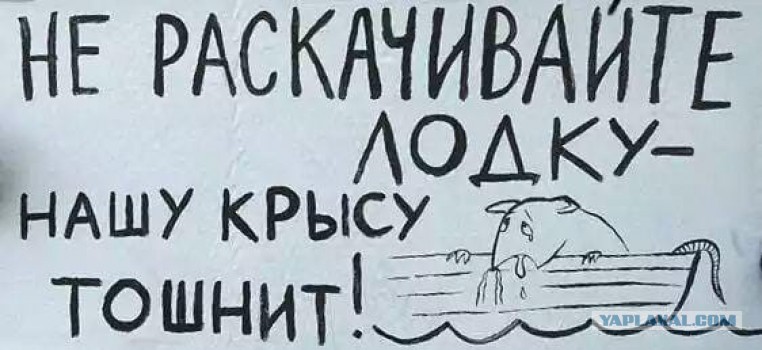 НЕ РАСКАЧИВАЙТЕ
ЛОДКУ-
НАШУ КРЫСУ
ТОШНИТ!
YAPLAKAL.COM